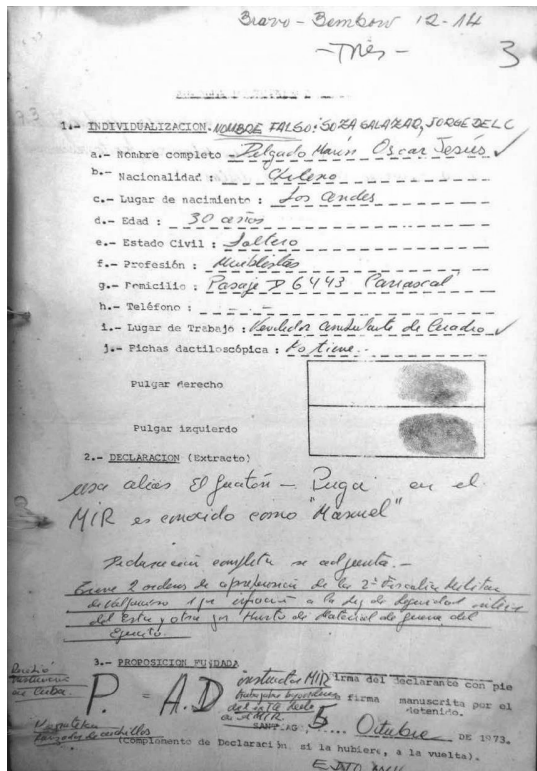 Bravo - Bembow 12-14
-Tres-
3
1.- INDIVIDUALIZACION. NOMBRE FALSO: SOZA GALAZAD, JORGE DEL C
a.- Nombre completo Delgado Marin Oscar Jesús
b.- Nacionalidad : Chileno
c.- Lugar de nacimiento : Los Andes
d.- Edad : 30 años
e.- Estado Civil : Soltero
f.- Profesión : Mueblista
g.- Domicilio : Pasaje D 6443 Carrascal
h.- Teléfono :
i.- Lugar de Trabajo : Vendedor Ambulante de Cuadro
j.- Fichas dactiloscópica : No tiene..
Pulgar derecho
Pulgar izquierdo
2.- DECLARACION (Extracto)
usa alias El Guatón - Puga en el
MIR es conocido como "Manuel"
Declaración completa se adjunta.-
2 ordenes de aprehensión de la 2ª Fiscalia Militar
de Valparaiso 1 por infracción a la Ley de Seguridad
del Estado y otra por Hurto de Material de guerra del
Ejército.
3.- PROPOSICION FUNDADA
Recibió
en Cuba.
P. = A.D
instructor MIR
irma del declarante con pie
firma manuscrita por el
detenido.
SANTIAGO, 5 Octubre DE 1973.
lanzador de cuchillos
(Complemento de Declaración, si la hubiere, a la vuelta).